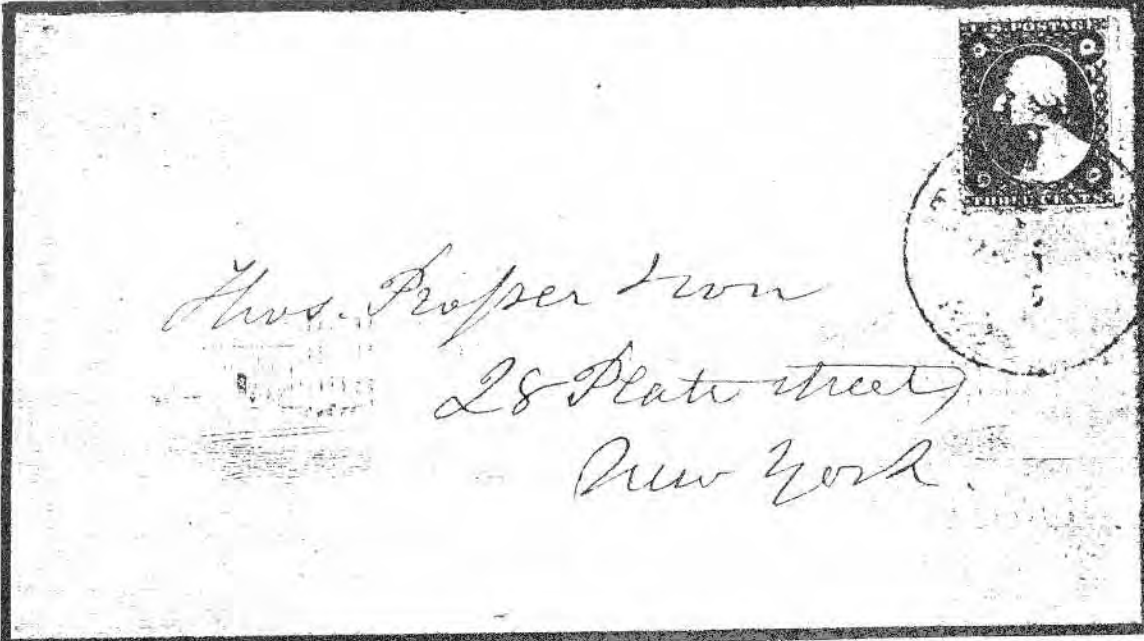 U.S. POSTAGE
THREE CENTS
Thos. Prosser & Son
28 Platt street
New York.